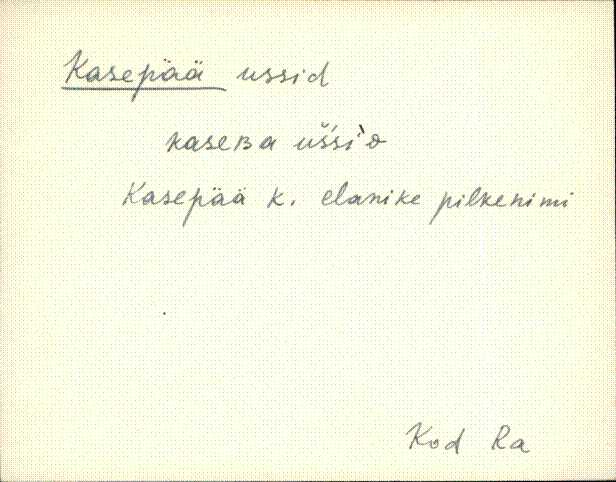 Kasepää ussid
kaseʙa uš̀si̮ᴅ
Kasepää k. elanike pilkenimi
Kod Ra